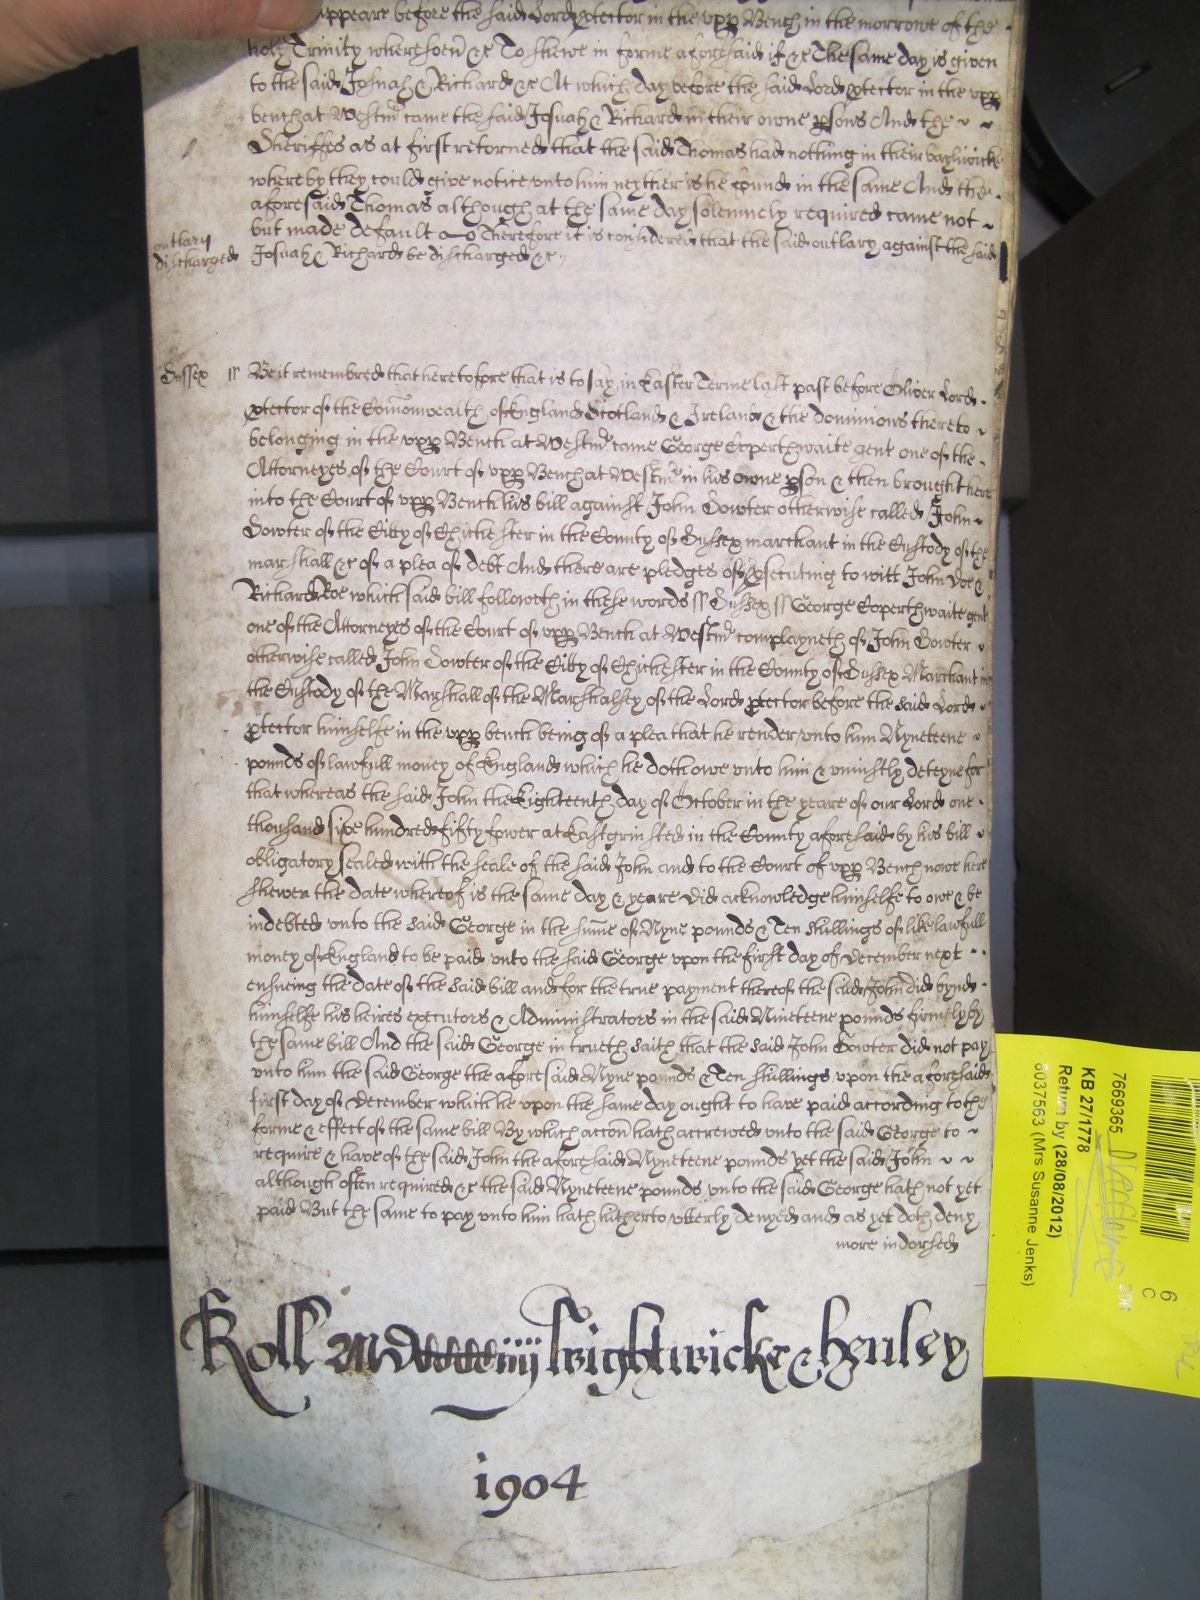 appeare before the said Lord Ptector in the upp Bench in the morrowe of the
holy Trinity wheresoev &c To shewe in forme aforesaid if &c The same day is given
to the said Josuah & Richard &c At which day before the said Lord Ptector in the upp
bench at Westmr came the said Josuah & Richard in their owne psons And the
Sheriffes as at first retorned that the said Thomas had nothing in their baylywicke
whereby they could give notice unto him neyther is he found in the same And the
aforesaid Thomas although at the same day solemnely required came not
but made default Therefore it is considered that the said outlary against the said
outlary
discharged
Josuah & Richard be discharged &c
Sussex ss Be it remembred that heretofore that is to say in Easter Terme last past before Oliver Lord
Ptector of the Comonwealth of England Scotland & Ireland & the dominions thereto
belonging in the upp Bench at Westmr came George Coperthwaite gent one of the
Attorneyes of the Court of upp Bench at Westmr in his owne pson & then brought here
into the Court of upp Bench his bill against John Cowter otherwise called John
Cowter of the Citty of Chichester in the County of Sussex marchant in the Custody of the
marshall &c of a plea of debt And there are pledges of psecuting to witt John Doe &
Richard Roe which said bill followeth in these words ss Sussex ss George Coperthwaite gent
one of the Attorneyes of the Court of upp Bench at Westmr complayneth of John Cowter
otherwise called John Cowter of the Citty of Chichester in the County of Sussex Marchant in
the Custody of the Marshall of the Marshalsey of the Lord Ptector before the said Lord
Ptector himselfe in the upp bench being of a plea that he render unto him Nyneteene
pounds of lawfull money of England which he doth owe unto him & uniustly deteyne for
that whereas the said John the Eighteenth day of October in the yeare of our Lord one
thousand sixe hundred fifty fower at Eastgrinsted in the County aforesaid by his bill
obligatory sealed with the seale of the said John and to the Court of upp Bench nowe here
shewen the date whereof is the same day & yeare did acknowledge himselfe to owe & be
indebted unto the said George in the sume of Nyne pounds & Ten shillings of like lawfull
money of England to be paid unto the said George upon the first day of December next
ensueing the date of the said bill and for the true payment thereof the said John did bynde
himselfe his heires executors & Administrators in the said Nineteene pounds firmely by
the same bill And the said George in trueth saith that the said John Cowter did not pay
unto him the said George the aforesaid Nyne pounds & Ten shillings upon the aforesaid
first day of December which he upon the same day ought to have paid according to the
forme & effect of the same bill By which accon hath accrewed unto the said George to
require & have of the said John the aforesaid Nyneteene pounds yet the said John
although often required &c the said Nyneteene pounds unto the said George hath not yet
paid But the same to pay unto him hath hitherto utterly denyed and as yet doth deny
more indorsed
Roll MDCCCCiiij Wightwicke & Henley
1904
7669365
KB 27/1778
Return by (28/08/2012)
6037563 (Mrs Susanne Jenks)
6
C